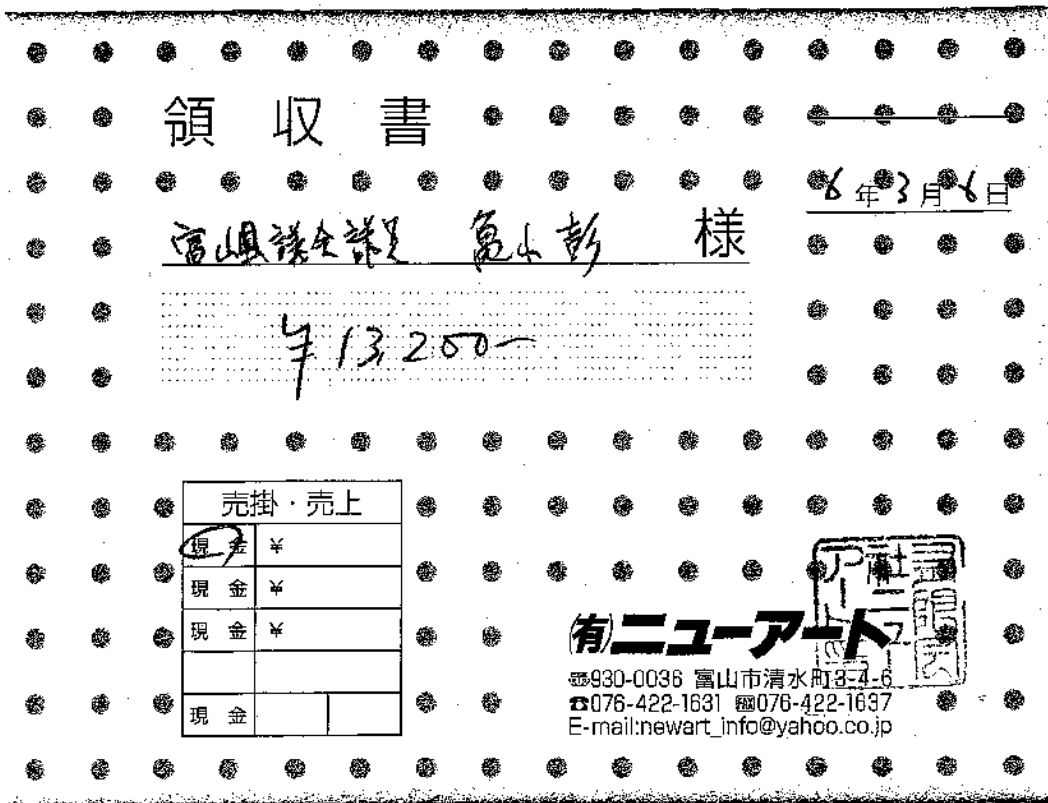 領収書
6年3月6日
富山県議会議員 亀山彰 様
¥13,200-
売掛・売上
現金 ¥
現金 ¥
現金 ¥
現金
(有)ニューアート
〒930-0036 富山市清水町3-4-6
☎076-422-1631 FAX076-422-1637
E-mail:newart_info@yahoo.co.jp